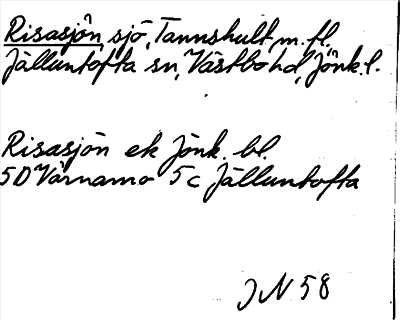 Risasjön, sjö, Tannshult m. fl.
Jälluntofta sn, Västbo hd, Jönk. l.
Risasjön ek Jönk. bl.
5D Värnamo 5c Jälluntofta
JN 58